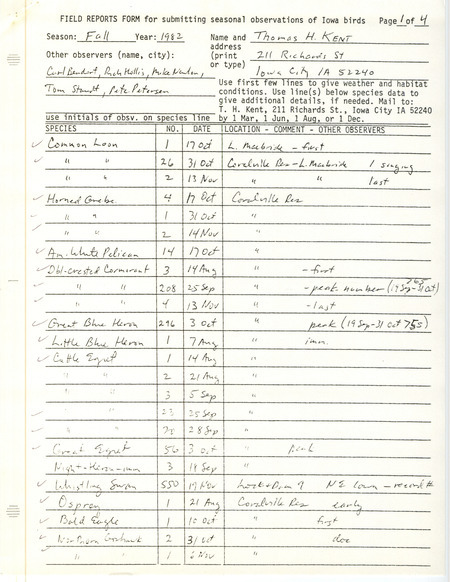 FIELD REPORTS FORM for submitting seasonal observations of Iowa birds Page 1 of 4
Season: Fall Year: 1982 Name and address (print or type) Thomas H. KENT
Other observers (name, city): 211 Richards St
Carl Bendorf, Rich Hollis, Mike Newlon, Iowa City IA 52240
Tom Staudt, Pete Petersen
Use first few lines to give weather and habitat
conditions. Use line(s) below species data to
give additional details, if needed. Mail to:
T. H. Kent, 211 Richards St., Iowa City IA 52240
use initials of obsv. on species line by 1 Mar, 1 Jun, 1 Aug, or 1 Dec.
SPECIES NO. DATE LOCATION - COMMENT - OTHER OBSERVERS
✓ Common Loon 1 17 Oct L. Macbride - first
✓ " " 26 31 Oct Coralville Res - L. Macbride 1 singing
✓ " " 2 13 Nov " " last
✓ Horned Grebe 4 17 Oct Coralville Res
" " 1 31 Oct "
✓ " " 2 14 Nov "
✓ Am. White Pelican 14 17 Oct "
✓ Dbl-crested Cormorant 3 14 Aug " - first
✓ " " 208 25 Sep " - peak number (19 Sep-31 Oct)
✓ " " 4 13 Nov " - last
✓ Great Blue Heron 296 3 Oct " peak (19 Sep-31 Oct 75s)
✓ Little Blue Heron 1 7 Aug " imm.
✓ Cattle Egret 1 14 Aug "
" " 2 21 Aug "
" " 3 5 Sep "
" " 23 25 Sep "
" " 28 Sep "
✓ Great Egret 56 3 Oct " peak
Night-Heron-imm 3 18 Sep "
✓ Whistling Swan 550 19 Nov Lock + Dam 9 NE Iowa - record #
✓ Osprey 1 21 Aug Coralville Res early
✓ Bald Eagle 1 10 Oct " first
✓ Northern Goshawk 2 31 Oct " doc
" " 1 6 Nov "